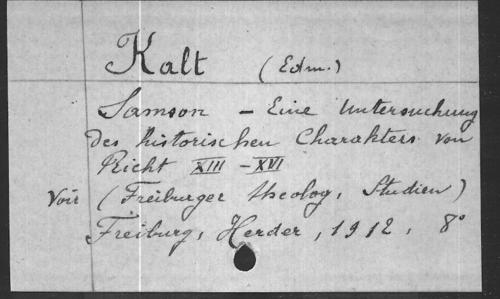 Kalt (Edm.)
Samson - Eine Untersuchung
des historischen Charakters von
Richt XIII - XVI
Voir (Freiburger theolog. Studien)
Freiburg, Herder, 1912, 8°